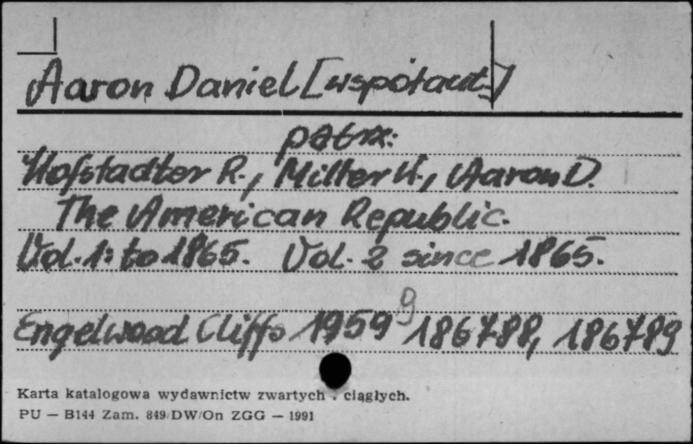 Aaron Daniel [współaut.]
patrz:
Hofstadter R., Miller W., Aaron D.
The American Republic.
Vol. 1: to 1865. Vol. 2 since 1865.
Engelwood Cliffs 1959 9 186788, 186789
Karta katalogowa wydawnictw zwartych i ciągłych.
PU — B144 Zam. 849/DW/On ZGG — 1991